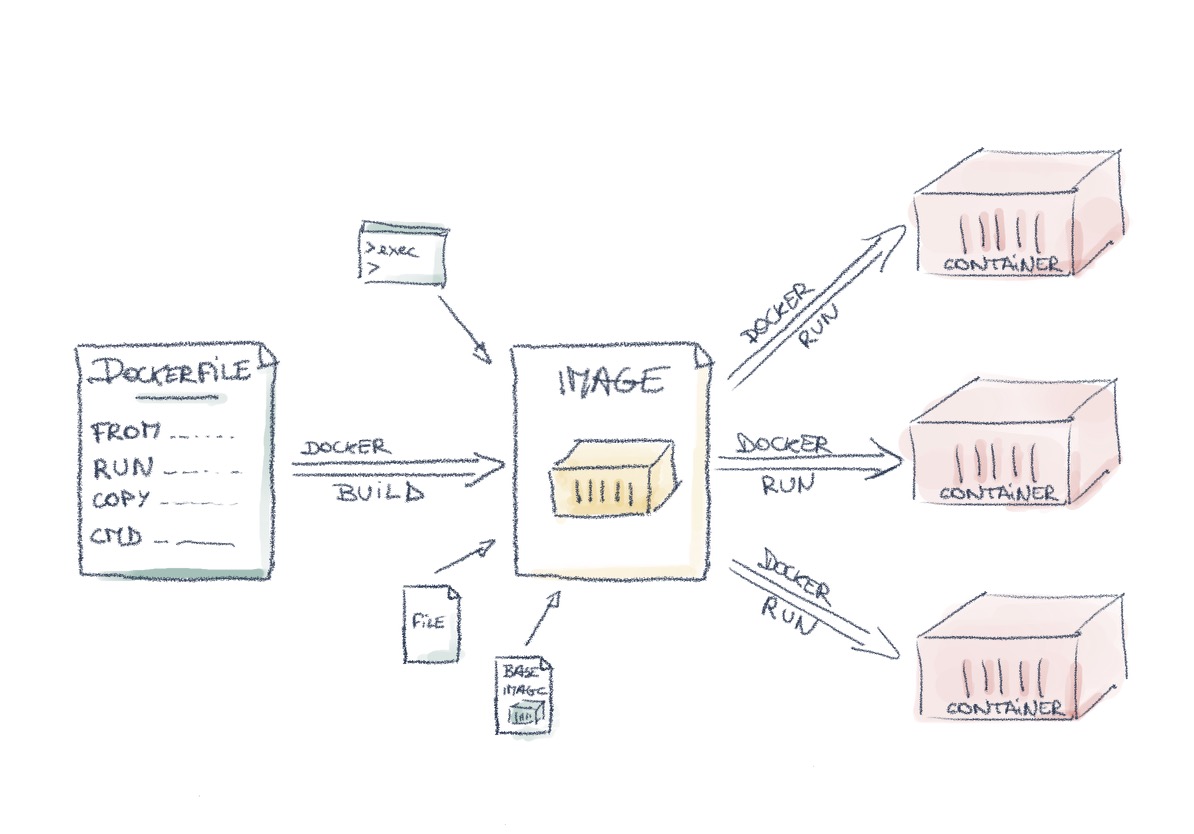 >exec
>
DOCKERFILE
FROM
RUN
COPY
CMD
DOCKER
BUILD
FILE
BASE
IMAGE
IMAGE
DOCKER
RUN
DOCKER
RUN
DOCKER
RUN
CONTAINER
CONTAINER
CONTAINER